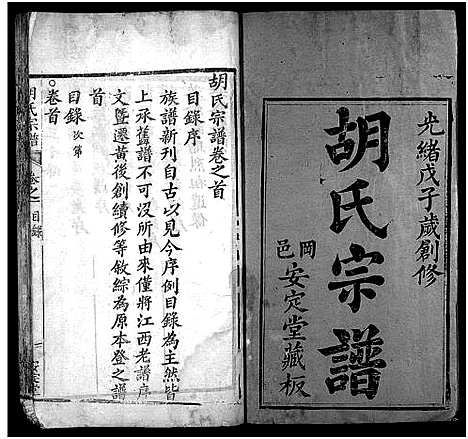 光緒戊子歲創修
胡氏宗譜
岡邑
安定堂藏板
胡氏宗譜卷之首
目錄序
族譜新刊自古以見今序例目錄為主然皆
上承舊譜不可沒所由來僅將江西老譜序
文暨遷黃後創續修等敘綜為原本登之譜
首
目錄 次第
○卷首
胡氏宗譜
卷之
目錄